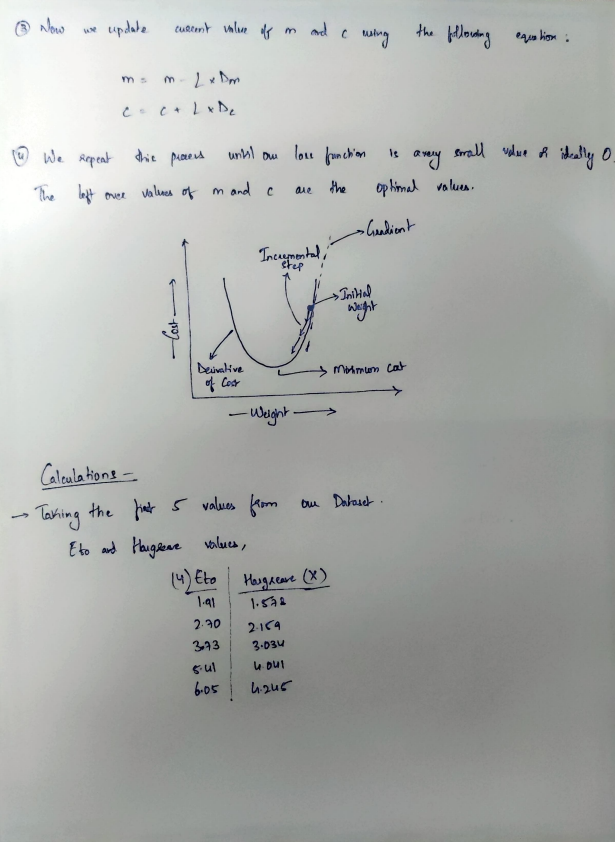 ③ Now we update current value of m and c using the following equation :
m = m - L x Dm
c = c + L x Dc
④ We repeat this process until our loss function is a very small value or ideally 0.
The left over values of m and c are the optimal values.
Gradient
Incremental
Step
Initial
Weight
Cost
Derivative
of Cost
Minimum Cost
Weight
Calculations -
→ Taking the first 5 values from our Dataset.
Eto and Hargreave values,
(Y) Eto Hargreave (X)
1.91 1.578
2.70 2.159
3.73 3.034
5.41 4.041
6.05 4.245